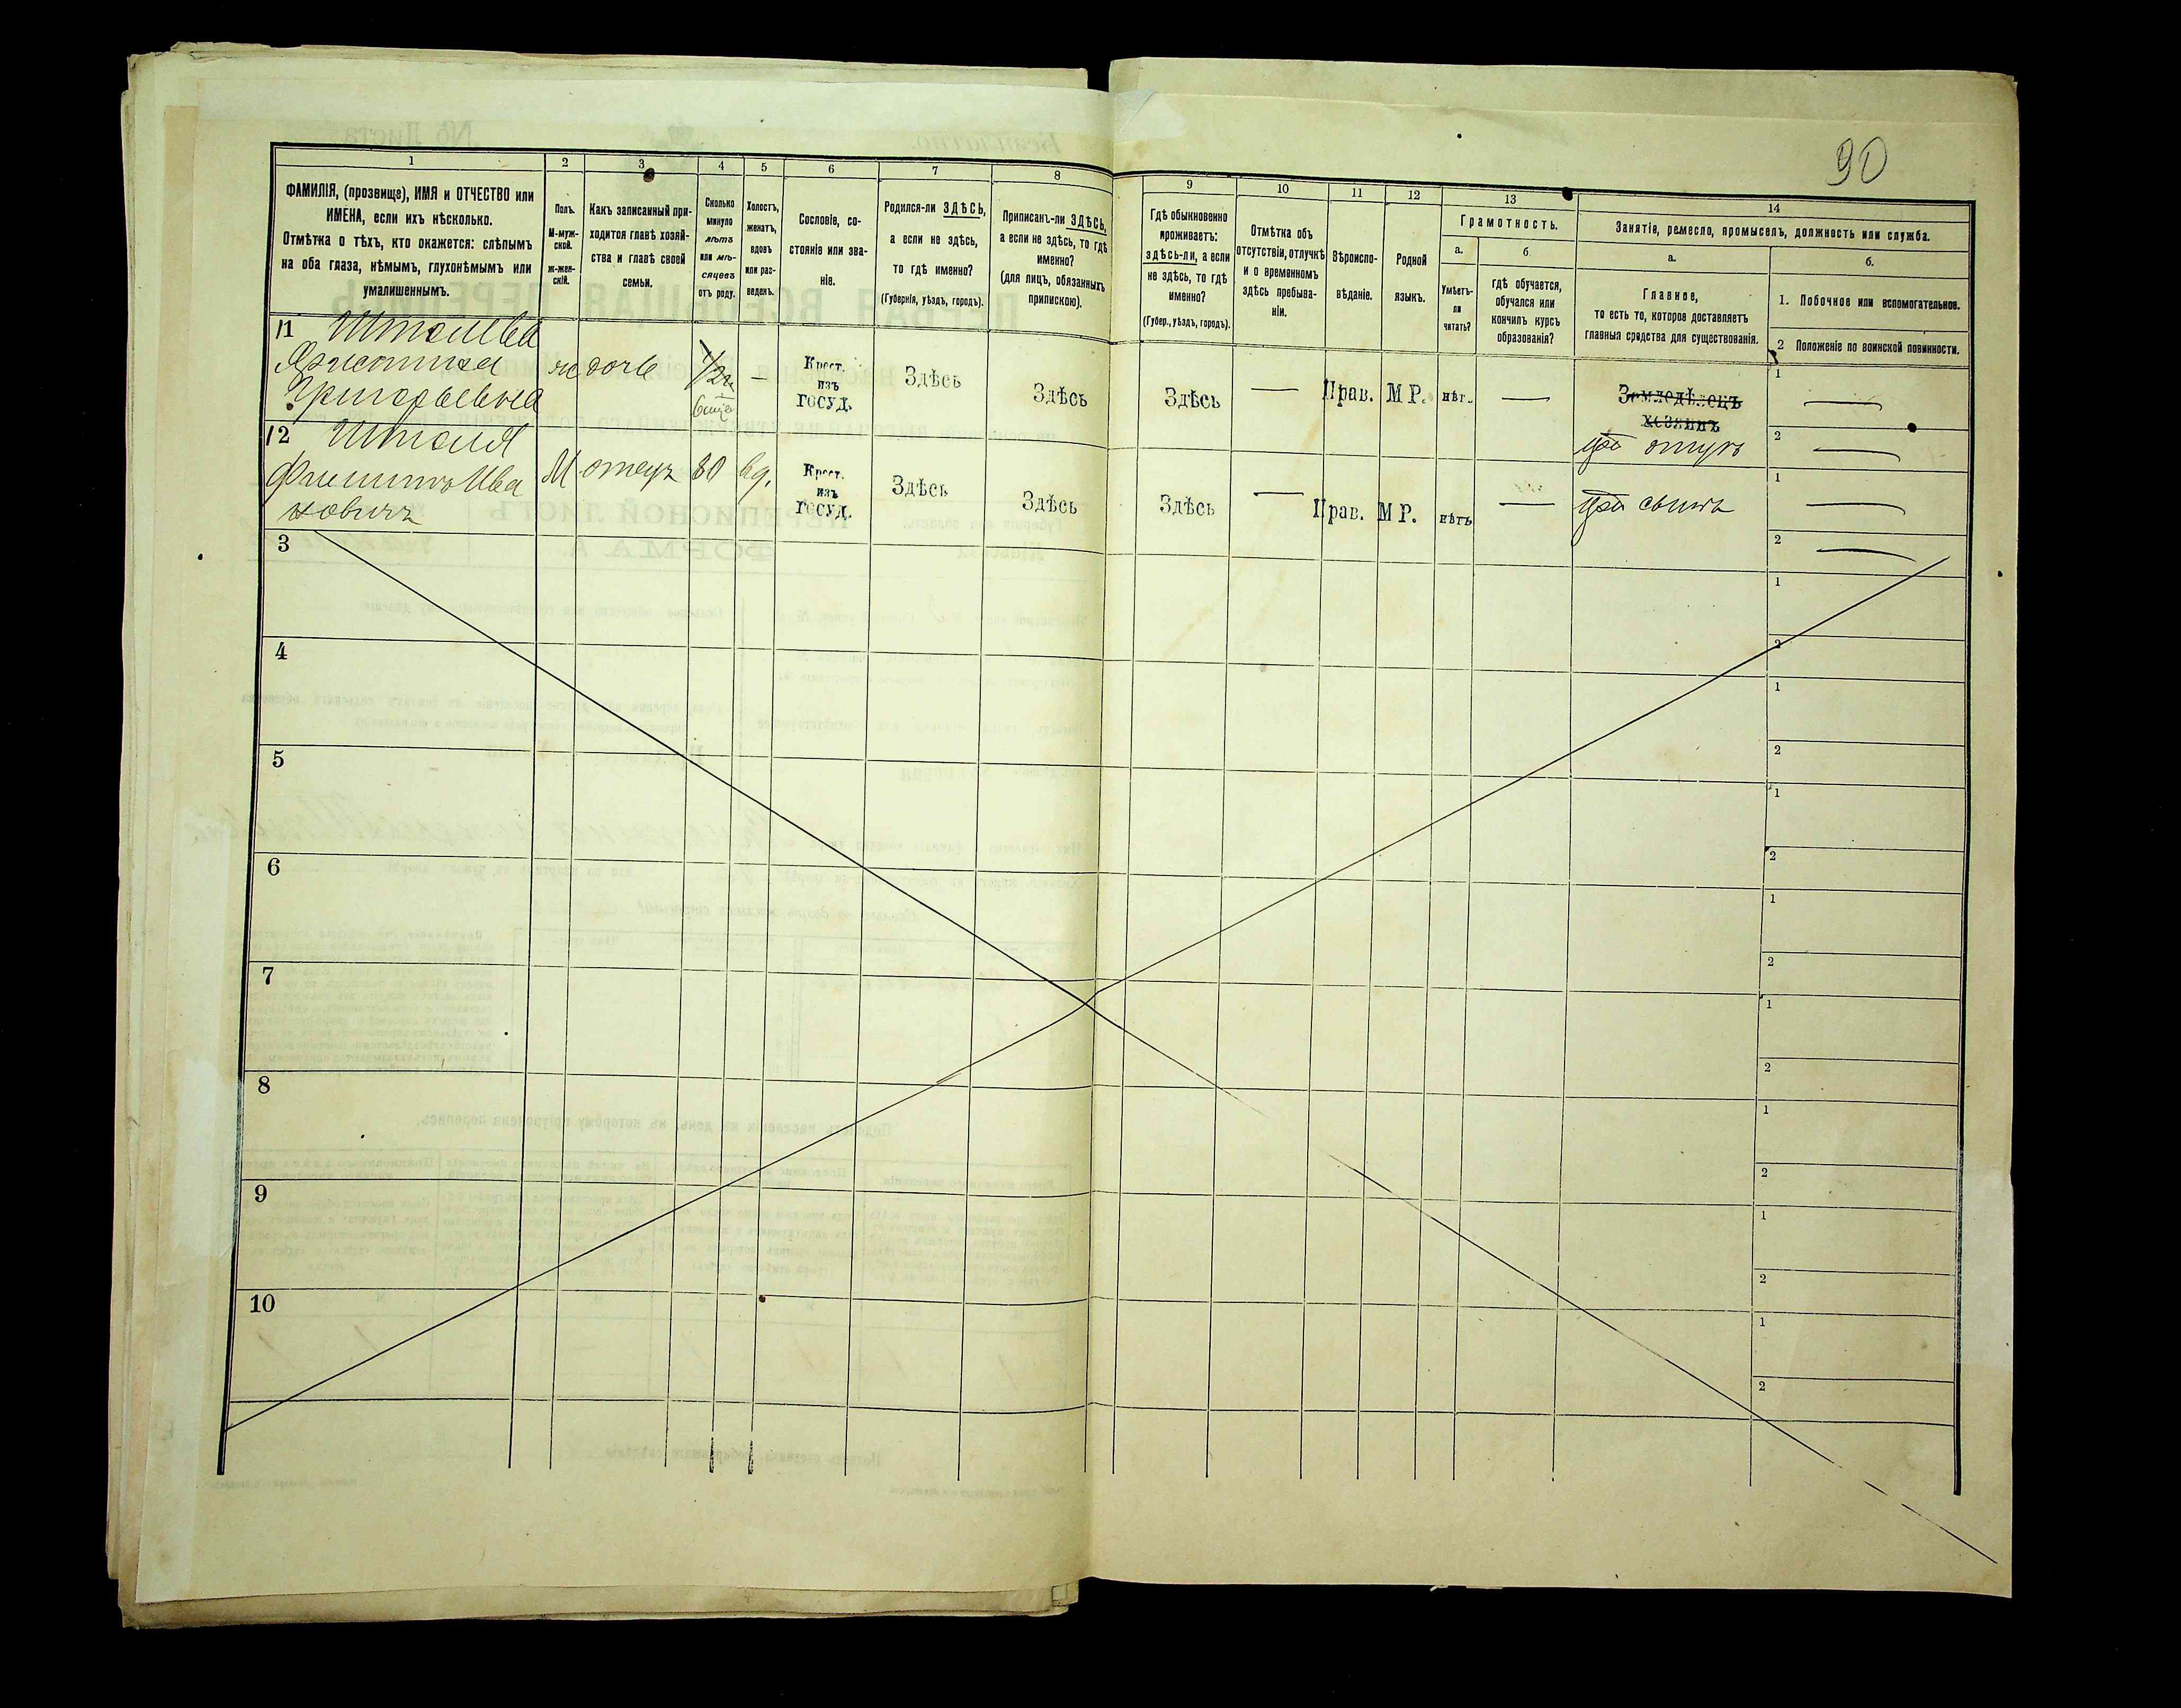 90
1
2
3
4
5
6
7
8
9
10
11
12
13
14
ФАМИЛІЯ, (прозвище), ИМЯ и ОТЧЕСТВО или
ИМЕНА, если ихъ нѣсколько.
Отмѣтка о тѣхъ, кто окажется: слѣпымъ
на оба глаза, нѣмымъ, глухонѣмымъ или
умалишеннымъ.
Полъ.
М-муж-
ской.
ж-жен-
скій.
Какъ записанный при-
ходится главѣ хозяй-
ства и главѣ своей
семьи.
Сколько
минуло
лѣтъ
или мѣ-
сяцевъ
отъ роду.
Холостъ,
женатъ,
вдовъ
или раз-
веденъ.
Сословіе, со-
стояніе или зва-
ніе.
Родился-ли ЗДѢСЬ,
а если не здѣсь,
то гдѣ именно?
(Губернія, уѣздъ, городъ).
Приписанъ-ли ЗДѢСЬ,
а если не здѣсь, то гдѣ
именно?
(для лицъ, обязанныхъ
припискою).
Гдѣ обыкновенно
проживаетъ:
здѣсь-ли, а если
не здѣсь, то гдѣ
именно?
(Губер., уѣздъ, городъ).
Отмѣтка объ
отсутствіи, отлучкѣ
и о временномъ
здѣсь пребыва-
ніи.
Вѣроиспо-
вѣданіе.
Родной
языкъ.
Грамотность.
а.
Умѣетъ-
ли
читать?
б
гдѣ обучается,
обучался или
кончилъ курсъ
образованія?
Занятіе, ремесло, промыселъ, должность или служба.
а.
Главное,
то есть то, которое доставляетъ
главныя средства для существованія.
б.
1. Побочное или вспомогательное.
2 Положеніе по воинской повинности.
11
Христина
Григорьевна
ж дочь
1/2
6 мѣс
—
Крест.
изъ
госуд.
Здѣсь
Здѣсь
Здѣсь
—
Прав.
МР.
нѣт.
—
Земледѣлецъ
хозяинъ
при отцѣ
1
—
2
—
12
Филиппъ Ива
новичъ
М отецъ 80 вд.
Крест.
изъ
госуд.
Здѣсь
Здѣсь
Здѣсь
—
Прав.
МР.
нѣтъ
—
при сынѣ
1
—
2
—
3
1
2
4
1
2
5
1
2
6
1
2
7
1
2
8
1
2
9
1
2
10
1
2